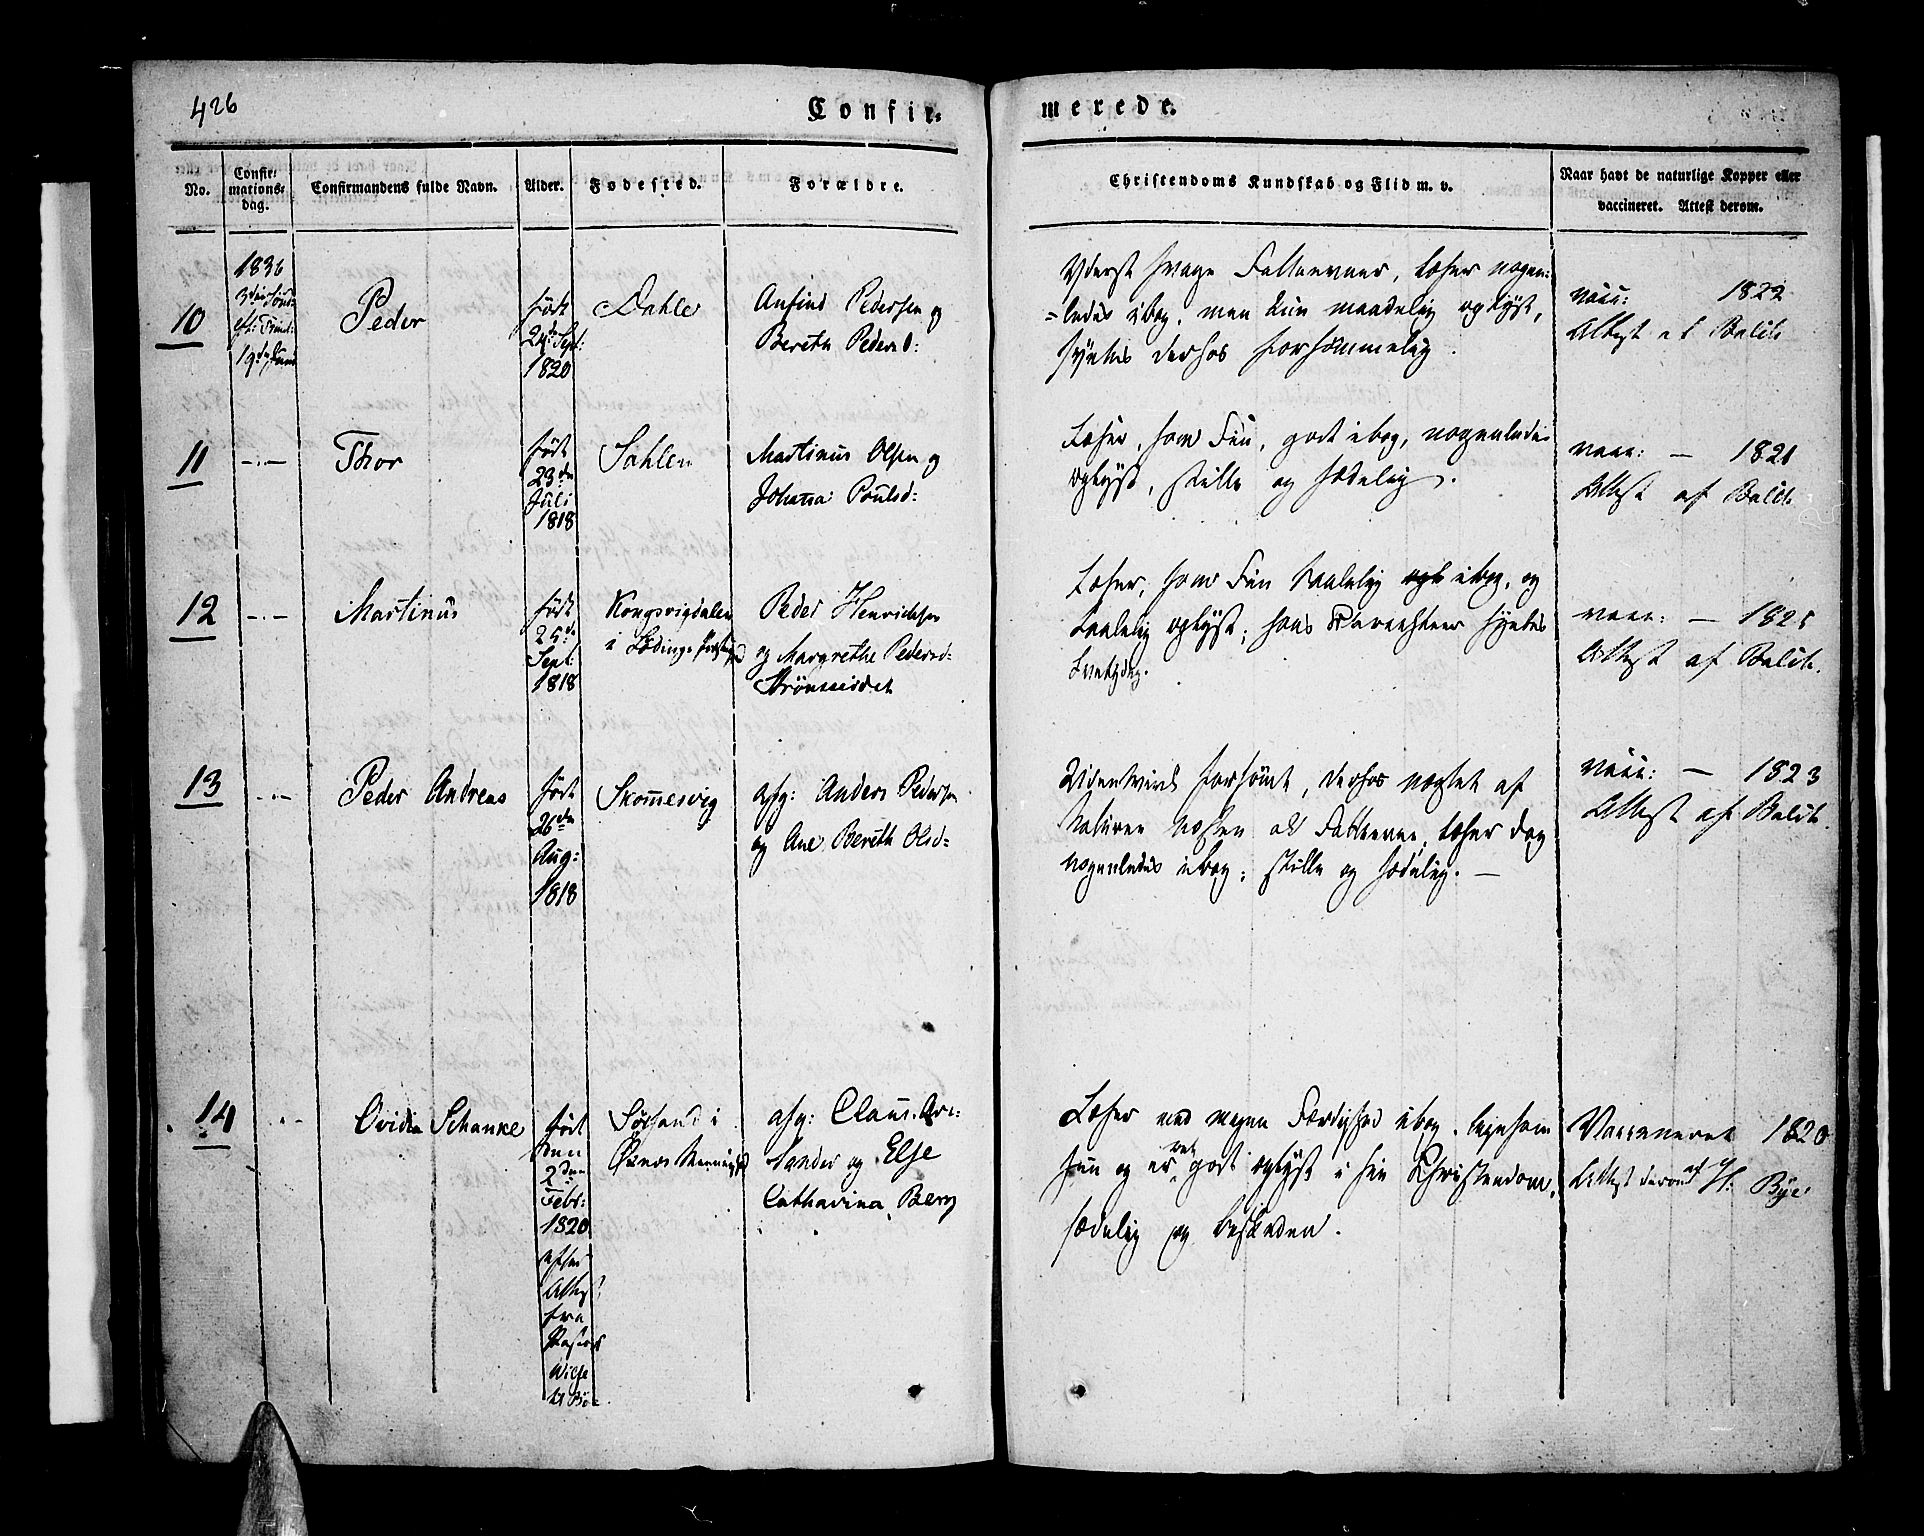 426
Confir-
merede.
No.
Confir-
mations-
dag.
Confirmandens fulde Navn.
Alder.
Fødested.
Forældre.
Christendoms Kundskab og Flid m. v.
Naar havt de naturlige Kopper eller
vaccineret. Attest derom.
10
1836
3die Sønd:
eft: Trinit:
19de Juni
Peder
født
24de Sept:
1820
Dahle
Anfind Pedersen og
Bereth Pedersd:
Yderst svage Fatteevner, læser nogen-
=ledes i bog, men kun maadelig oplyst,
synes derhos forsømmelig.
vacc: 1822
Attest af Balch
11
-.-
Thor
født
23de
Juli
1818
Sahlen
Martinus Olsen og
Johanna Poulsd:
Læser, som Fin, godt i bog, nogenledes
oplyst, stille og sædelig.
vacc: — 1821
Attest af Balch
12
-.-
Martinus
født
25de
Sept:
1818
Kongsvigdalen
i Lødinge
Peder Henrichsen
og Margrethe Pedersd:
Læser, som Fin taalelig i bog, og
taalelig oplyst; hans Charachteer synes
vacc: — 1825
Attest af Balch.
13
-.-
Peder Andreas
født
26de
Aug:
1818
Skommesvig
afg: Anders Pedersen
og Ane Bereth Olsd=
forsømt, derhos nægtet af
Naturen næsten al Fatteevne, læser dog
nogenledes i bog; stille og sædelig. —
vacc: — 1823
Attest af Balch.
14
-.-
Ovidia Schanke
født
den
2den
Febr:
1820
efter
Attest
fra
Pastor
Sørsand i
Øxnes
afg: Claus
og Else
Catharina Berg
Læser med megen Færdighed i bog, ligesom
hun og er vel godt oplyst i sin Christendom,
sædelig og beskeden.
Vaccineret 1820
Attest derom af H: Bye